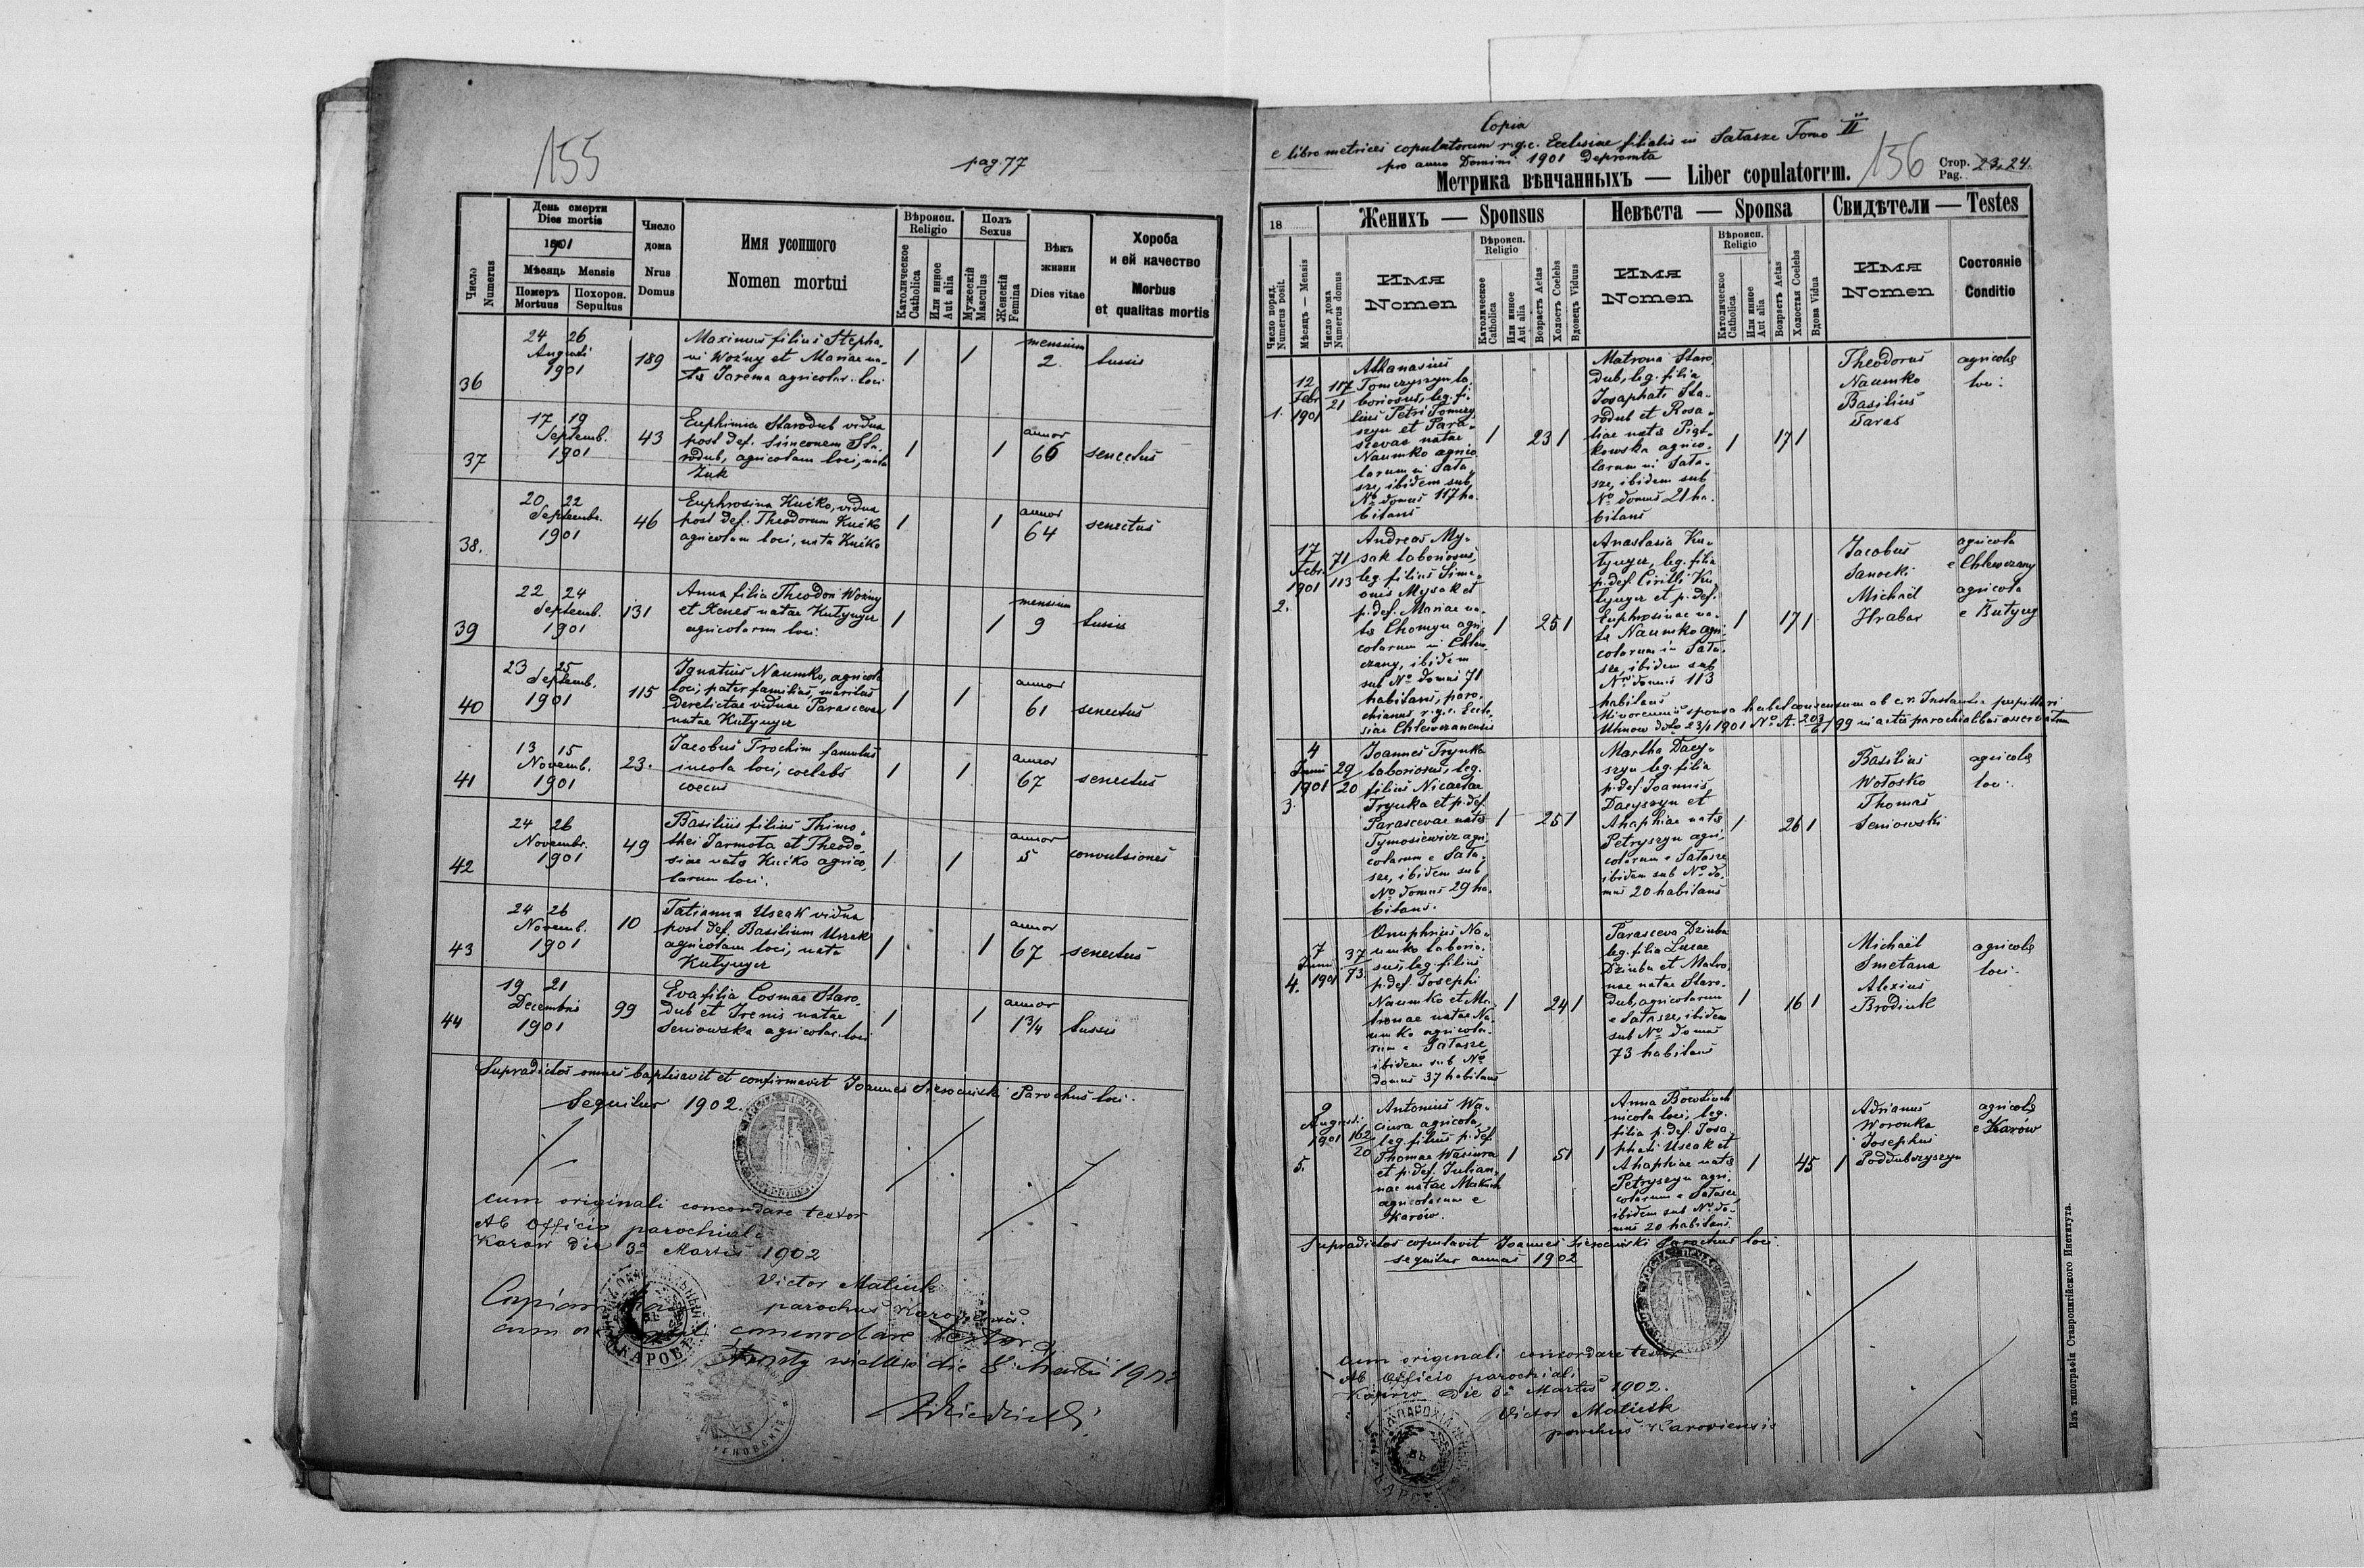 155
pag. 77
День смерти
Dies mortis
1901
Число
Numerus
Мѣсяць Mensis
Померъ
Mortuus
Похорон.
Sepultus
Число
дома
Nrus
Domus
Имя усопшого
Nomen mortui
Вѣроисп.
Religio
Католическое
Catholica
Или инное
Aut alia
Полъ
Sexus
Мужескій
Masculus
Женскій
Femina
Вѣкъ
жизни
Dies vitae
Хороба
и ей качество
Morbus
et qualitas mortis
36
24 26
Augusti
1901
189
Maximus filius Stepha-
ni Woźny et Mariae na-
tae Jarema agricolar. loci
1 1
mensium
2
tussis
37
17 19
Septemb.
1901
43
Euphimia Starodub vidua
post def. Simeonem Sta-
rodub, agricolam loci, nata
Żuk
1 1
annor
66
senectus
38.
20 22
Septembr.
1901
46
Euphrosina Kućko, vidua
post def. Theodorum Kućko
agricolam loci, nata Kućko
1 1
annor
64
senectus
39
22 24
Septemb.
1901
131
Anna filia Theodori Woźny
et Xenes natae Kutynyer
agricolarum loci.
1 1
mensium
9
tussis
40
23 25
Septemb.
1901
115
Ignatius Naumko, agricola
loci, pater familias, maritus
derelictae viduae Parascevae
natae Kutynyer
1 1
annor
61
senectus
41
13 15
Novemb.
1901
23.
Jacobus Trochim famulus
incola loci, coelebs
coecus
1 1
annor
67
senectus
42
24 26
Novembr.
1901
49
Basilius filius Thimo-
thei Jarmota et Theodo-
siae natae Kućko agrico-
larum loci.
1 1
annor
5
convulsiones
43
24 26
Novemb.
1901
10
Tatianna Uszak vidua
post def. Basilium Uszak
agricolam loci, nata
Kutynyer
1 1
annor
67
senectus
44
19 21
Decembris
1901
99
Eva filia Cosmae Staro-
dub et Irenis natae
Seniowska agricolar. loci
1 1
annor
1 3/4
tussis
Supradictos omnes baptisavit et confirmavit Joannes Sierociński Parochus loci.
Sequitur 1902.
cum originali concordare testor
Ab Officio parochiali
Karów die 3a Martis 1902
Victor Matiuk
parochus Karoviensis.
concordare testor
die 8 Martii 1902
Copia
e libro metrices copulatorum r.g.c. Ecclesiae filialis in Sałasze Tomo II
pro anno Domini 1901 depromta
156
Метрика вѣнчанныхъ — Liber copulatorum.
Стор.
Pag. 23, 24.
18
Женихъ — Sponsus
Невѣста — Sponsa
Свидѣтели — Testes
Число поряд.
Numerus posit.
Мѣсяць — Mensis
Число дома
Numerus domus
Имя
Nomen
Вѣроисп.
Religio
Католическое
Catholica
Или инное
Aut alia
Возрастъ Aetas
Холостъ Coelebs
Вдовецъ Viduus
Имя
Nomen
Вѣроисп.
Religio
Католическое
Catholica
Или инное
Aut alia
Возрастъ Aetas
Холостая Coelebs
Вдова Vidua
Имя
Nomen
Состояніе
Conditio
1.
12
Febr
1901
117
21
Athanasius
Tomczyszyn la-
boriosus, leg. fi-
lius Petri Tomczy-
szyn et Para-
scevae natae
Naumko agrico-
larum in Sała-
sze, ibidem sub
No domus 117 ha-
bitans
1 23 1
Matrona Staro-
dub, leg. filia
Josaphati Sta-
rodub et Rosa-
liae natae Pięt-
kowska agrico-
larum in Sała-
sze, ibidem sub
No domus 21 ha-
bitans
1 17 1
Theodorus
Naumko
Basilius
Taras
agricolae
loci.
2.
17
Febr.
1901
71
113
Andreas My-
sak laboriosus,
leg. filius Sime-
onis Mysak et
p. def. Mariae na-
tae Chomyn agri-
colarum in Chlew-
czany, ibidem
sub No domus 71
habitans, paro-
chianus r.g.c. Eccle-
siae Chlewczanensis
1 25 1
Anastasia Ku-
tynyer, leg. filia
p. def. Cirilli Ku-
tynyer et p. def.
Euphrosinae na-
tae Naumko agri-
colarum in Sała-
sze, ibidem sub
No domus 113
habitans
1 17 1
Minorennis sponsa habet consensum ab c.r. Instantia pupillari
Uhnow dto 23/1 1901 No A. 209/6/99 in actis parochialibus asservatum
Jacobus
Sanocki
Michaël
Hrabar
agricola
e Chlewczany
agricola
e Butyny
3.
4
Junii
1901
29
20
Joannes Trynka
laboriosus, leg.
filius Nicaetae
Trynka et p. def.
Parascevae natae
Tymosiewicz agri-
colarum e Sała-
sze, ibidem sub
No domus 29 ha-
bitans.
1 25 1
Martha Dacy-
szyn leg. filia
p. def Joannis
Dacyszyn et
Ahaphiae natae
Petryszyn agri-
colarum e Sałasze
ibidem sub No do-
mus 20 habitans
1 26 1
Basilius
Wołosko
Thomas
Seniowski
agricolae
loci.
4.
7
Junii
1901
37
73.
Onuphrius Na-
umko laborio-
sus, leg. filius
p. def. Josephi
Naumko et Ma-
tronae natae Na-
umko agricola-
rum e Sałasze,
ibidem sub No
domus 37 habitans
1 24 1
Parasceva Dziuba
leg. filia Lucae
Dziuba et Matro-
nae natae Staro-
dub, agricolarum
e Sałasze, ibidem
sub No domus
73 habitans
1 16 1
Michaël
Smetana
Alexius
Brodiuk
agricolae
loci.
5.
9
Augusti
1901
162
20
Antonius Wa-
ciura agricola,
leg. filius p. def.
Thomae Waciura
et p. def. Julian-
nae natae Makuch
agricolarum e
Karów.
1 51 1
Anna
leg.
filia p. def. Josa-
phati Uszak et
Ahaphiae natae
Petryszyn agri-
colarum e Sałasze,
ibidem sub No do-
mus 20 habitans.
1 45 1
Adrianus
Woronka
Josephus
Poddubczyszyn
agricolae
e Karów
Supradictos copulavit Joannes Sierociński Parochus loci.
sequitur annus 1902
cum originali concordare testor
Ab Officio parochiali
Karów die 3a Martis 1902.
Victor Matiuk
parochus Karoviensis
Изъ типографіи Ставропигійского Института.